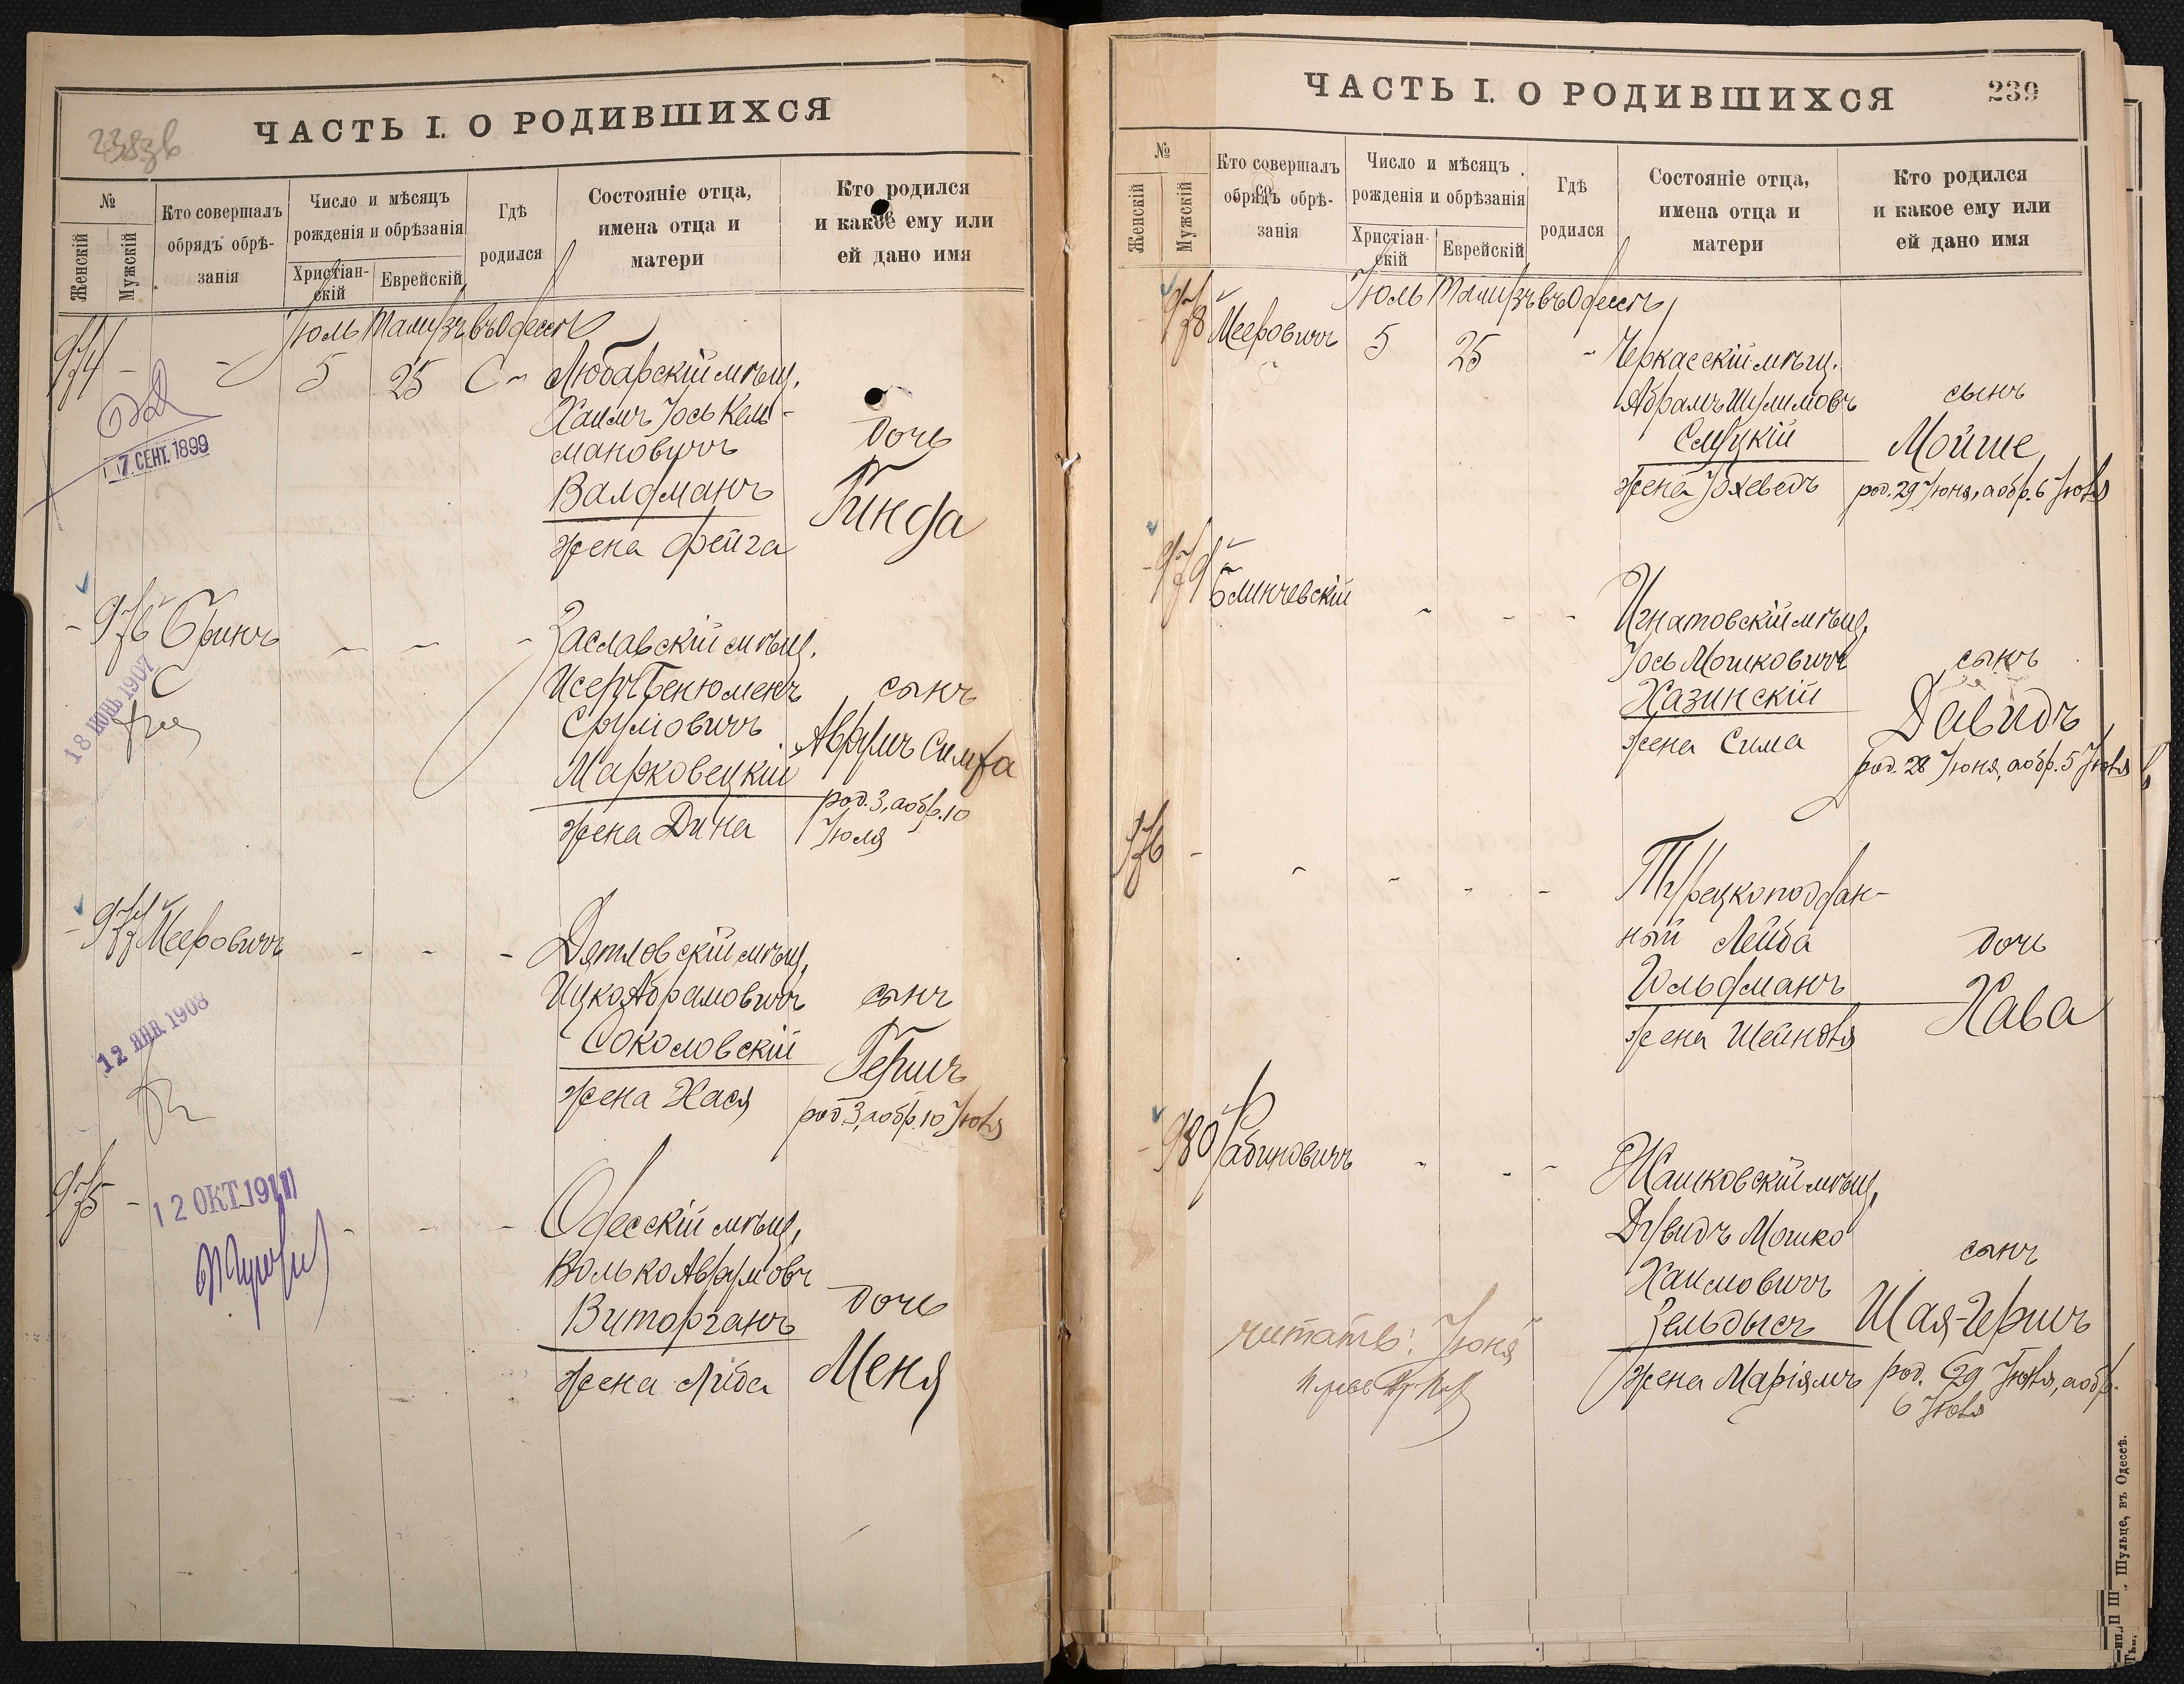 238зв
ЧАСТЬ I. О РОДИВШИХСЯ
№
Женскій
Мужскій
Кто совершалъ
обрядъ обрѣ-
занія
Число и мѣсяцъ
рожденія и обрѣзанія
Христіан-
скій
Еврейскій
Гдѣ
родился
Состояніе отца,
имена отца и
матери
Кто родился
и какое ему или
ей дано имя
Іюль Тамузъ въ Одессѣ
974 - - 5 25 Любарскій мѣщ.
Хаимъ Іось Кель-
мановичъ
дочь
Валдманъ
Гинда
жена Фейга
17 СЕНТ. 1899
976 Бринъ - - - Заславскій мѣщ.
Исеръ Бенюменъ
сынъ
Сруловичъ
Аврумъ Симха
Марковецкій
род. 3, а обр. 10
Іюля
жена Дина
18 ИЮНЬ 1907
977 Мееровичъ - - - Дятловскій мѣщ.
Ицко Абрамовичъ
сынъ
Соколовскій
Гершъ
жена Хася
род. 3, а обр. 10 Іюля
12 ЯНВ 1908
975 - - - - Одесскій мѣщ.
Волько Аврумовъ
дочь
Виторганъ
Меня
жена Ліба
12 ОКТ. 1911
ЧАСТЬ I. О РОДИВШИХСЯ
239
№
Женскій
Мужскій
Кто совершалъ
обрядъ обрѣ-
занія
Число и мѣсяцъ
рожденія и обрѣзанія
Христіан-
скій
Еврейскій
Гдѣ
родился
Состояніе отца,
имена отца и
матери
Кто родился
и какое ему или
ей дано имя
Іюль Тамузъ въ Одессѣ
978 Мееровичъ 5 25 - Черкасскій мѣщ.
Абрамъ Шулимовъ
сынъ
Слуцкій
Мойше
жена Юхеведъ
род. 29 Іюня, а обр. 6 Іюля
979 Блинчевскій - - - Игнатовскій мѣщ.
Іось Мошковичъ
сынъ
Хазинскій
Давидъ
жена Сима
род. 28 Іюня, а обр. 5 Іюля
976 - - - - - Турецкоподдан-
ный Лейба
дочь
Гольдманъ
Хава
жена Шейндля
980 Рабиновичъ - - - Жашковскій мѣщ.
Дувидъ Мошко
сынъ
Хаимовичъ
Шая-Гершъ
Зельдысъ
род. 29 Іюля, а обр.
6 Іюля
жена Маріямъ
читать: "Іюня"
Шульце, въ Одессѣ.